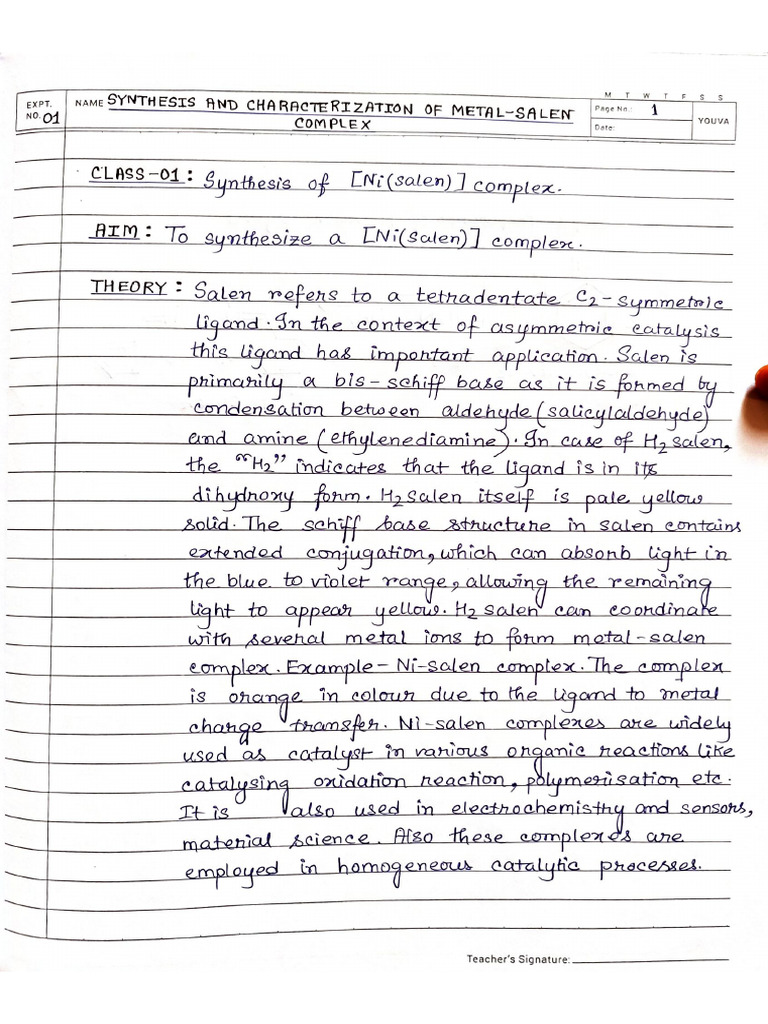 M T W T F S S
EXPT. NO. 01 NAME SYNTHESIS AND CHARACTERIZATION OF METAL-SALEN Page No.: 1 YOUVA
COMPLEX Date:
CLASS-01: Synthesis of [Ni(salen)] complex.
AIM: To synthesize a [Ni(salen)] complex.
THEORY: Salen refers to a tetradentate C2-symmetric
ligand. In the context of asymmetric catalysis
this ligand has important application. Salen is
primarily a bis-schiff base as it is formed by
condensation between aldehyde (salicylaldehyde)
and amine (ethylenediamine). In case of H2salen,
the "H2" indicates that the ligand is in its
dihydroxy form. H2salen itself is pale yellow
solid. The schiff base structure in salen contains
extended conjugation, which can absorb light in
the blue to violet range, allowing the remaining
light to appear yellow. H2 salen can coordinate
with several metal ions to form metal-salen
complex. Example- Ni-salen complex. The complex
is orange in colour due to the ligand to metal
charge transfer. Ni-salen complexes are widely
used as catalyst in various organic reactions like
catalysing oxidation reaction, polymerisation etc.
It is also used in electrochemistry and sensors,
material science. Also these complexes are
employed in homogeneous catalytic processes.
Teacher's Signature: